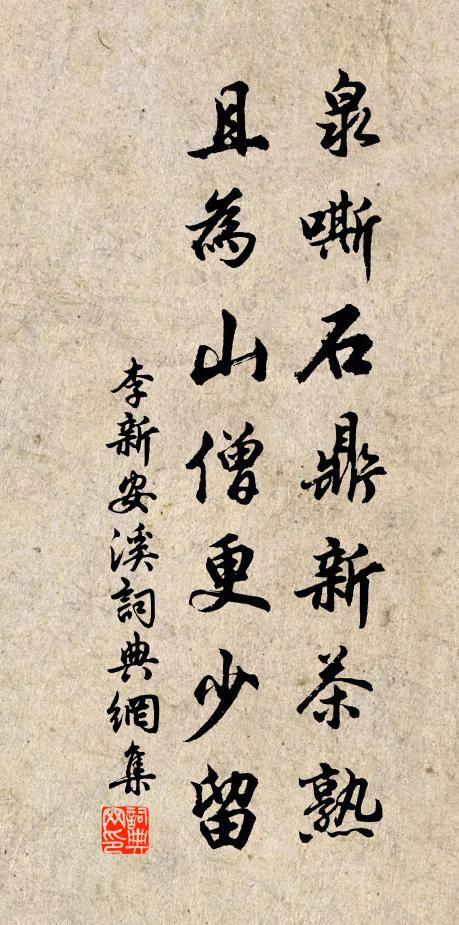 泉嘶石鼎新茶熟
且為山僧更少留
李新安溪詞典網集
詞典網印